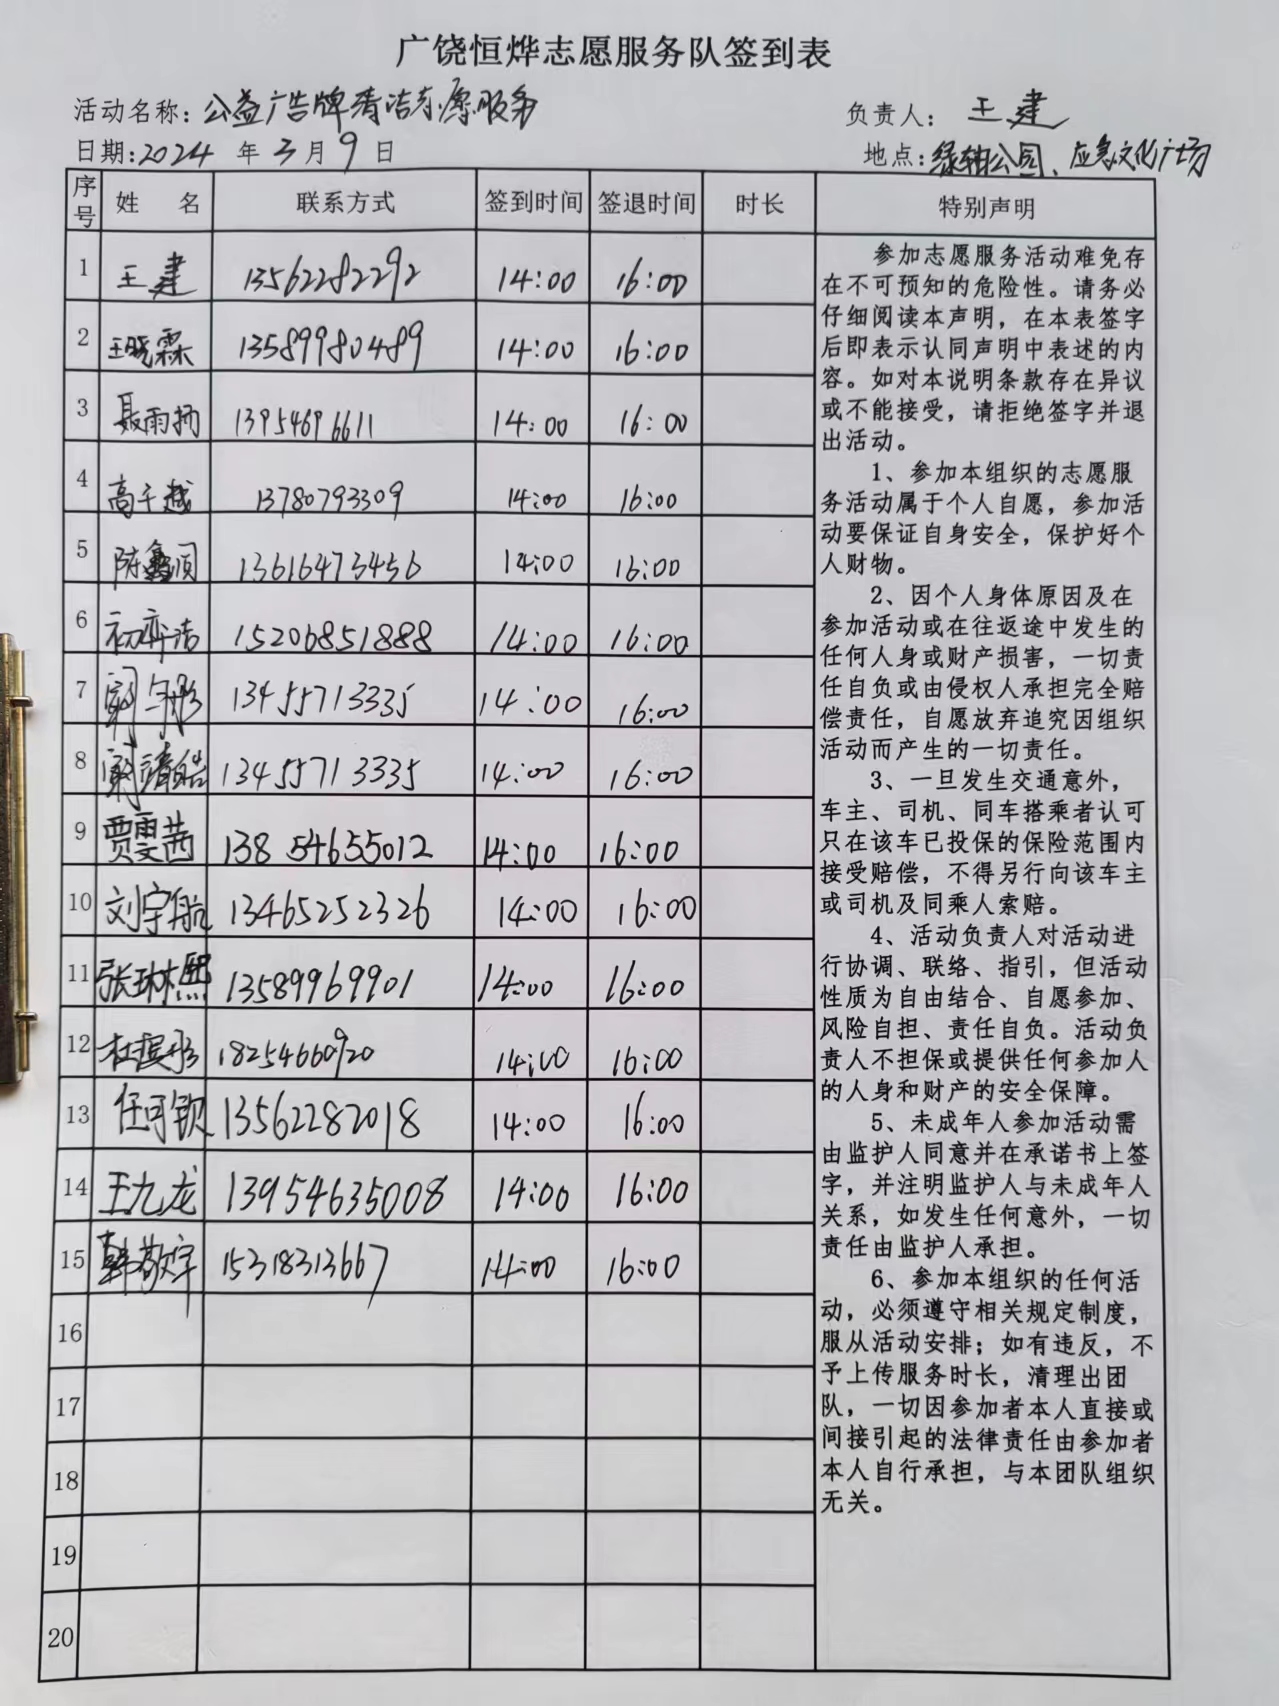 广饶恒烨志愿服务队签到表
活动名称：公益广告牌清洁志愿服务
负责人：王建
日期：2024年3月9日
地点：绿轴公园、应急文化广场
序号 姓名 联系方式 签到时间 签退时间 时长 特别声明
1 王建 13562282292 14:00 16:00
2 王晓霖 13589980489 14:00 16:00
3 聂雨扬 13954696611 14:00 16:00
4 高千越 13780793309 14:00 16:00
5 陈鑫顺 13616473456 14:00 16:00
6 初奕洁 15206851888 14:00 16:00
7 13455713335 14:00 16:00
8 13455713335 14:00 16:00
9 贾雯茜 13854655012 14:00 16:00
10 刘宇航 13465252326 14:00 16:00
11 张琳熙 13589969901 14:00 16:00
12 18254660920 14:00 16:00
13 任可钡 13562282018 14:00 16:00
14 王九龙 13954635008 14:00 16:00
15 韩敬宇 15318313667 14:00 16:00
16
17
18
19
20
参加志愿服务活动难免存
在不可预知的危险性。请务必
仔细阅读本声明，在本表签字
后即表示认同声明中表述的内
容。如对本说明条款存在异议
或不能接受，请拒绝签字并退
出活动。
1、参加本组织的志愿服
务活动属于个人自愿，参加活
动要保证自身安全，保护好个
人财物。
2、因个人身体原因及在
参加活动或在往返途中发生的
任何人身或财产损害，一切责
任自负或由侵权人承担完全赔
偿责任，自愿放弃追究因组织
活动而产生的一切责任。
3、一旦发生交通意外，
车主、司机、同车搭乘者认可
只在该车已投保的保险范围内
接受赔偿，不得另行向该车主
或司机及同乘人索赔。
4、活动负责人对活动进
行协调、联络、指引，但活动
性质为自由结合、自愿参加、
风险自担、责任自负。活动负
责人不担保或提供任何参加人
的人身和财产的安全保障。
5、未成年人参加活动需
由监护人同意并在承诺书上签
字，并注明监护人与未成年人
关系，如发生任何意外，一切
责任由监护人承担。
6、参加本组织的任何活
动，必须遵守相关规定制度，
服从活动安排；如有违反，不
予上传服务时长，清理出团
队，一切因参加者本人直接或
间接引起的法律责任由参加者
本人自行承担，与本团队组织
无关。